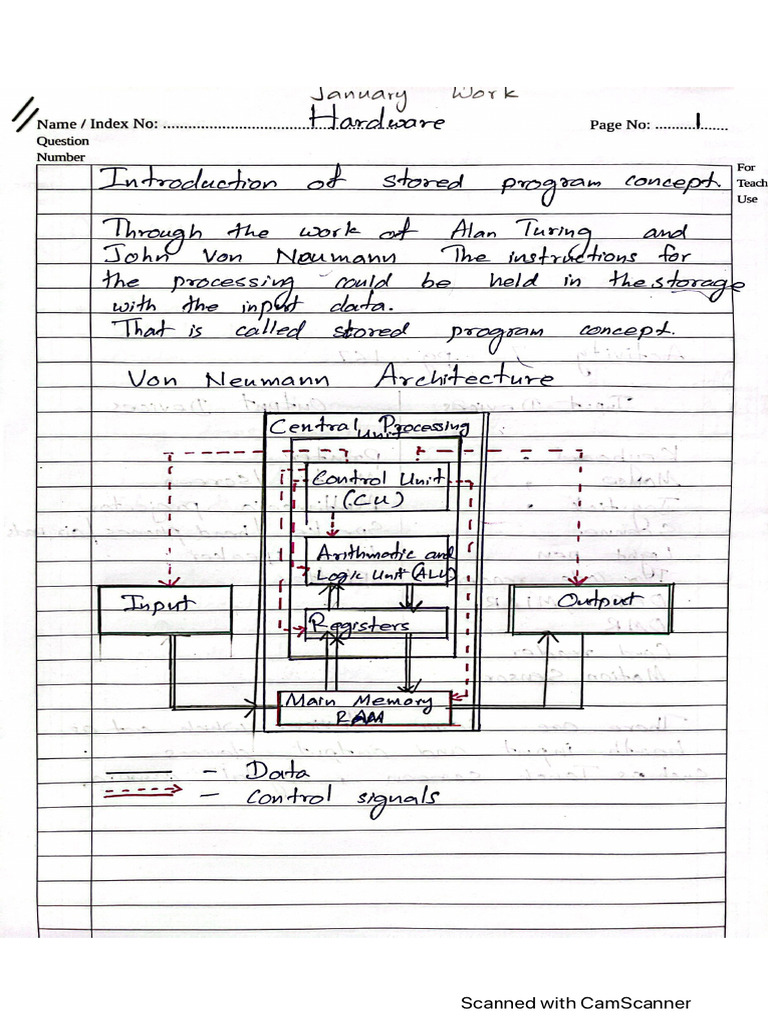 January Work
Name / Index No: ........................................ Hardware Page No: ..........1.......
Question
Number
For
Teach
Use
Introduction of stored program concept.
Through the work of Alan Turing and
John Von Neumann The instructions for
the processing could be held in the storage
with the input data.
That is called stored program concept.
Von Neumann Architecture
Central Processing
Unit
Control Unit
(CU)
Arithmatic and
Logic Unit (ALU)
Input
Output
Registers
Main Memory
RAM
- Data
- Control signals
Scanned with CamScanner